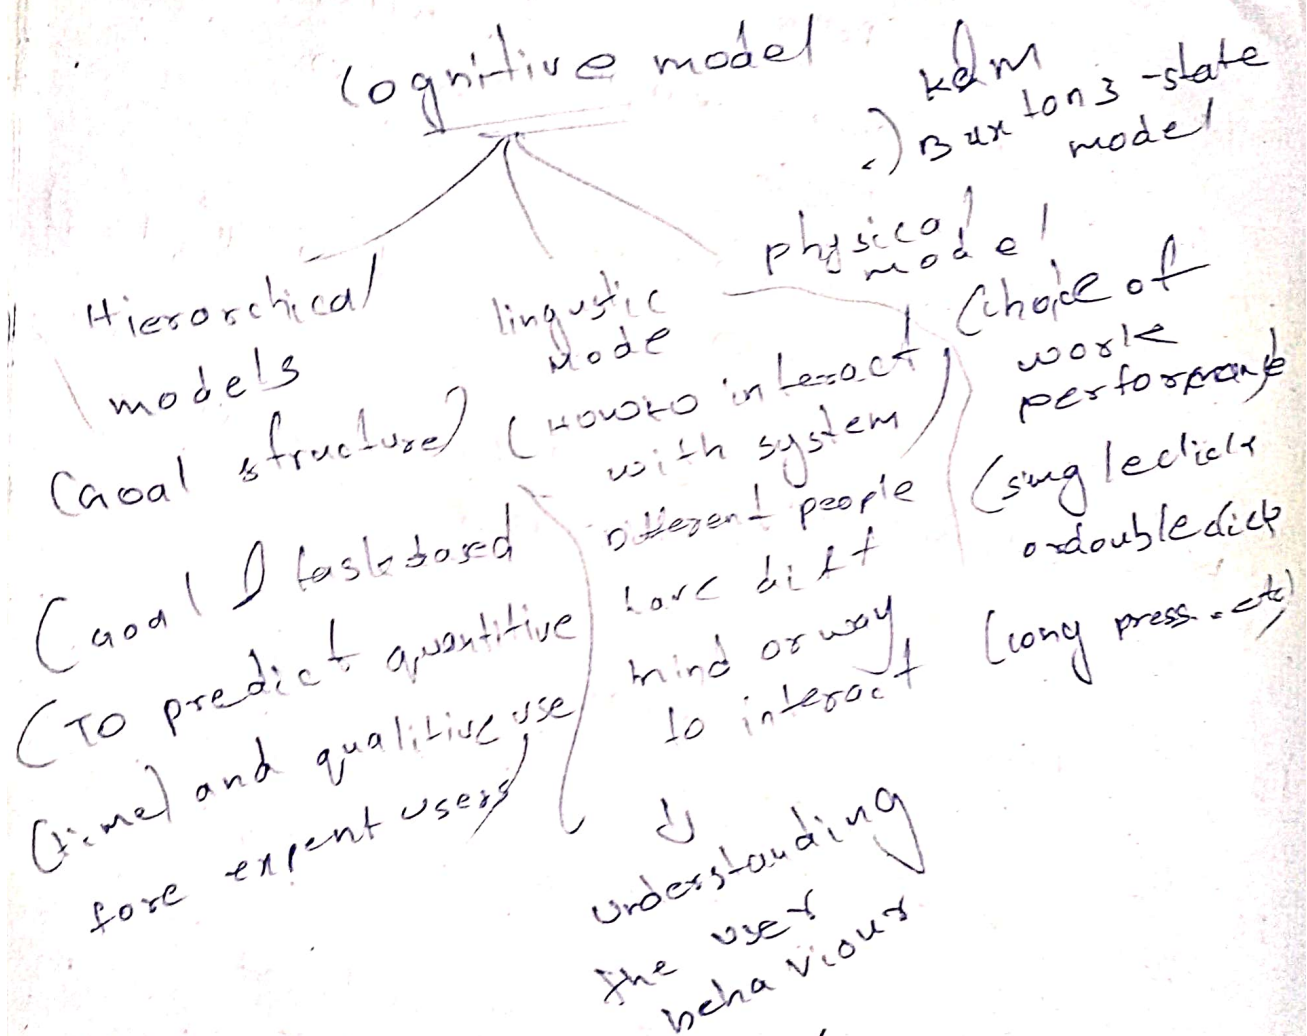 Cognitive model
KLM
.) Buxton 3-state
model
Hierarchical
models
(Goal structure)
(Goal & task based
(To predict quantitive
(time) and qualitive use
fore expent users)
lingustic
mode
(How to interact
with system)
Different people
have diff
mind or way
to interact
understanding
the user
behaviour
physical
model
(choice of
work
performance)
(single click
or double click
(long press.. etc)